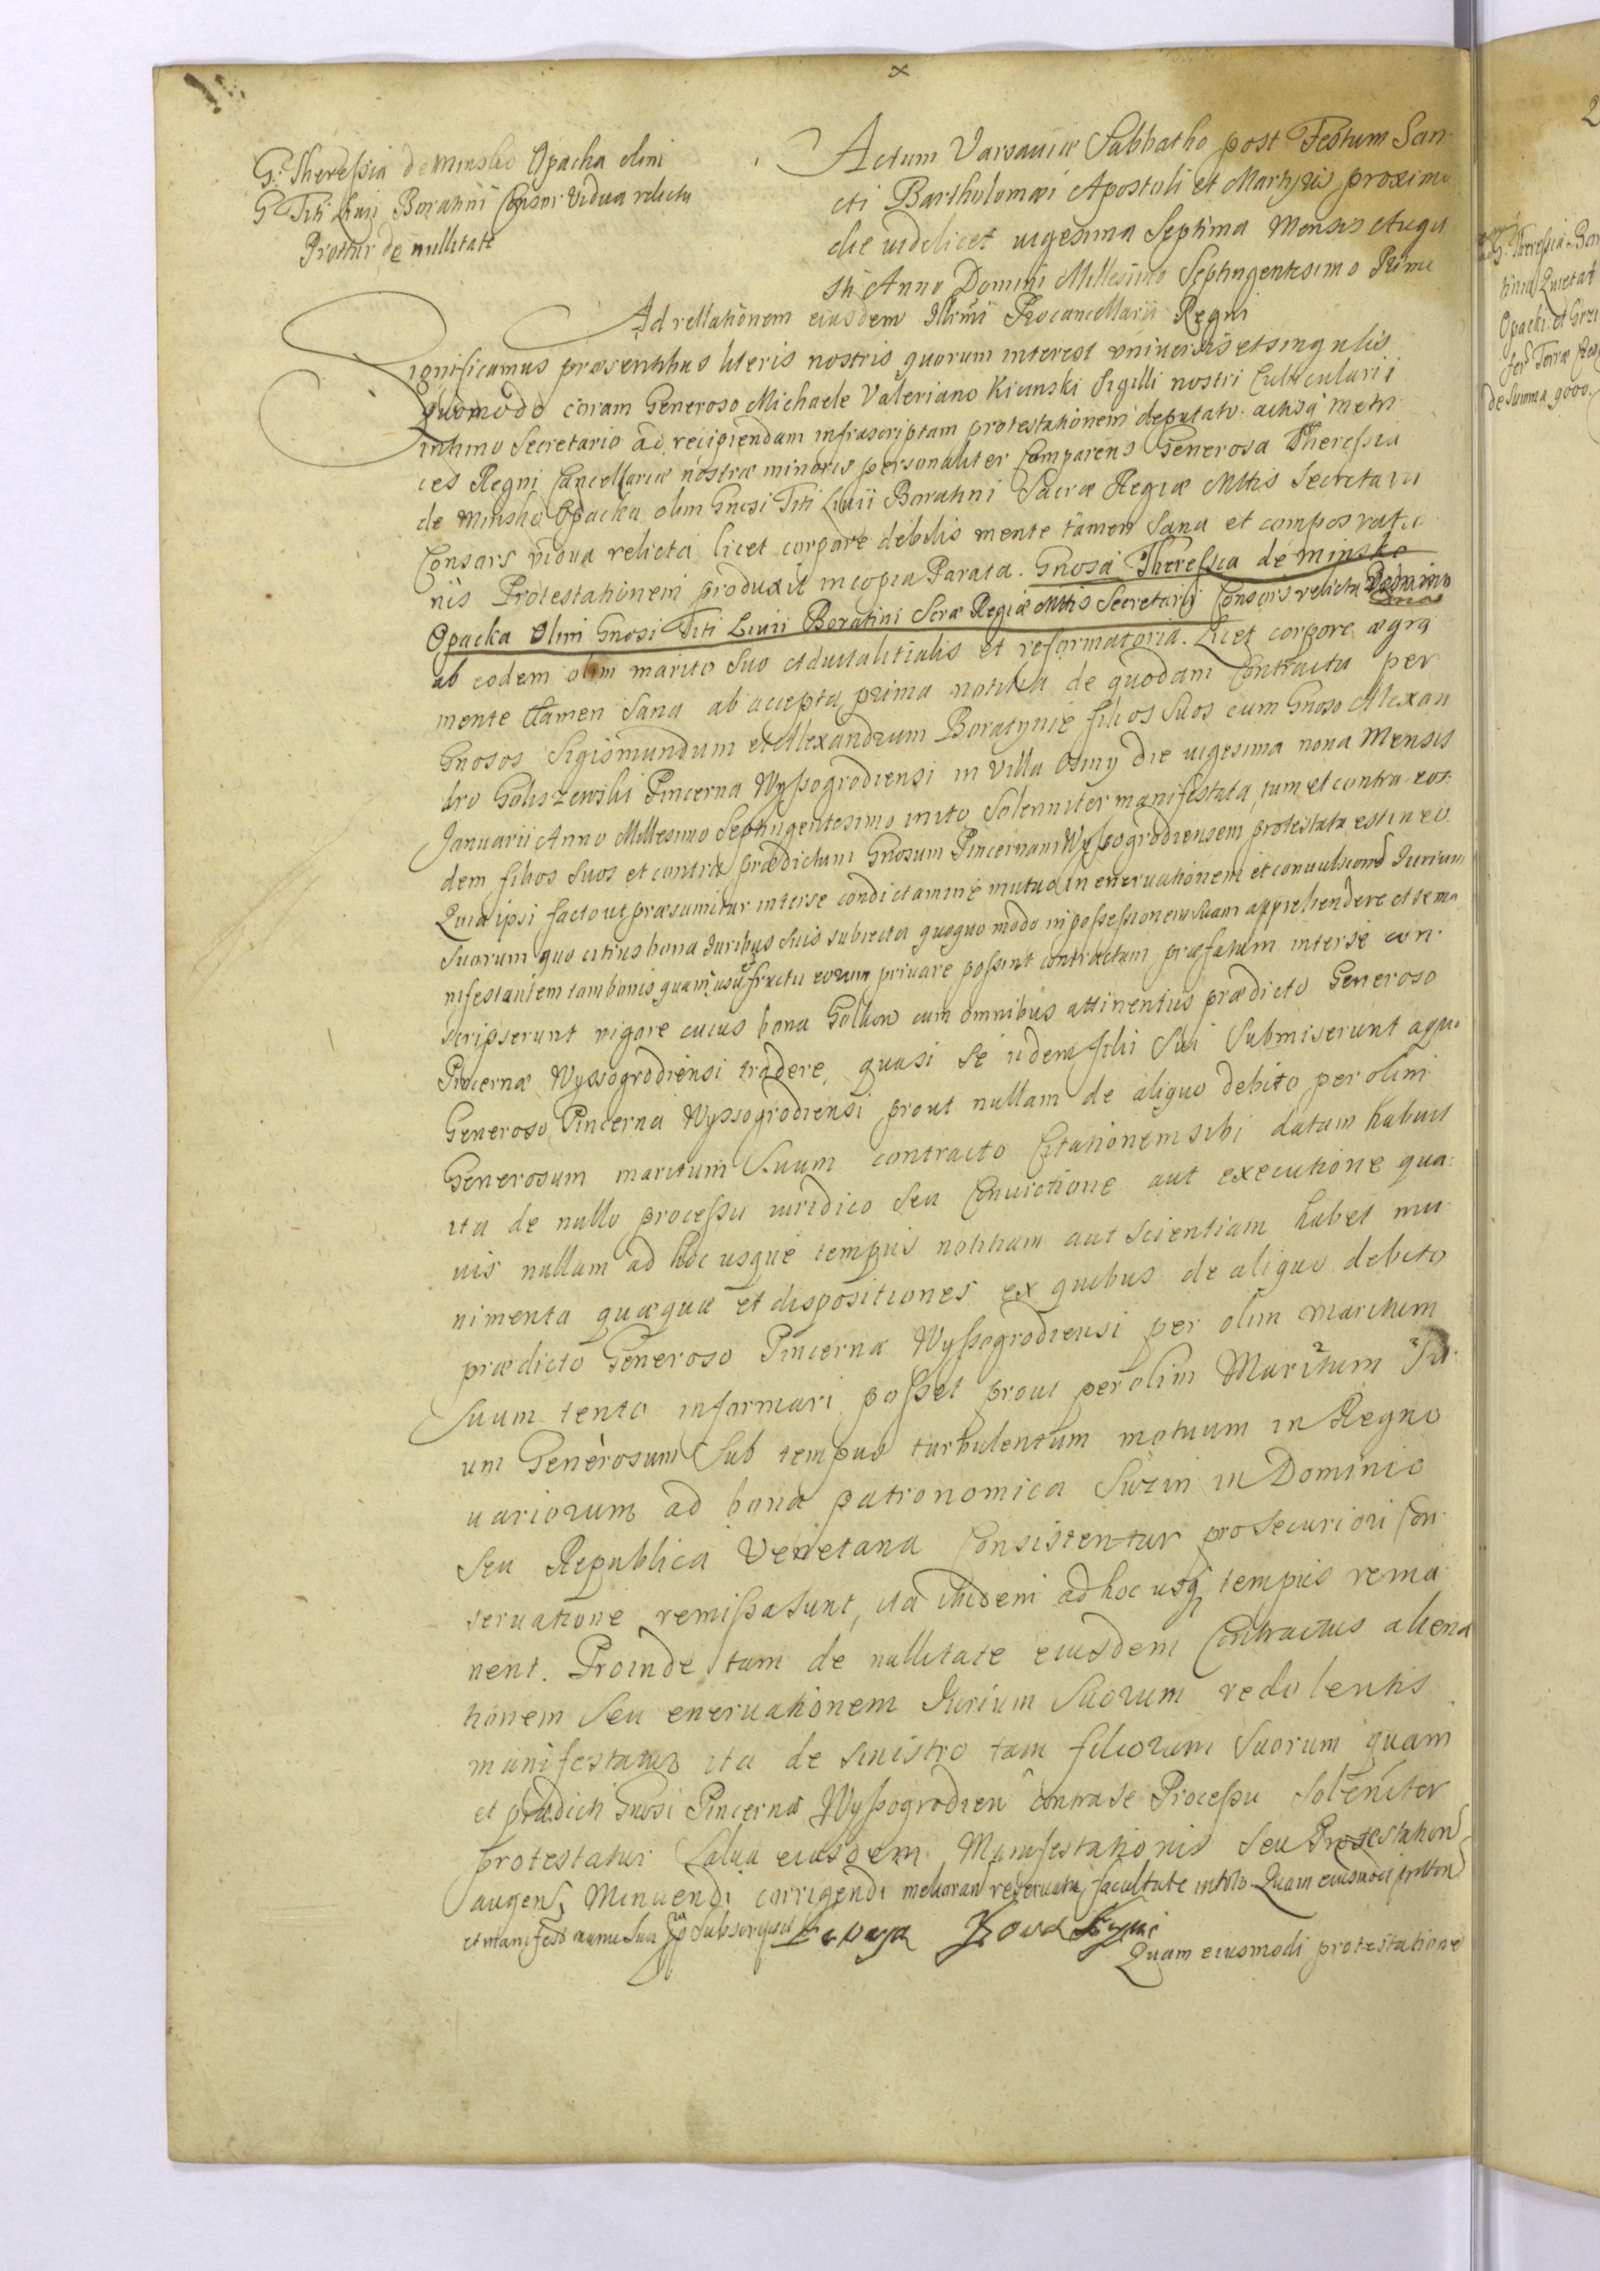 G. Theressia de Minsko Opacka olim
G Titi Livii Boratini Consor vidua relicta
Prottur de nullitate
Actum Varsaviæ Sabbatho post Festum San-
cti Bartholomæi Apostoli et Martyris proximo
die videlicet vigesima Septima Mensis Augu
sti Anno Domini Millesimo Septingentesimo Primo
Ad rellationem eiusdem Illrmi Procancellarii Regni
Significamus præsentibus literis nostris quorum interest universis et singulis
quomodo coram Generoso Michaele Valeriano Kicinski Sigilli nostri Cubicularii
intimo Secretario ad recipiendam infrascriptam protestationem deputato actisq metri
ces Regni Cancellariæ nostræ minoris personaliter Comparens Generosa Theressia
de Minsko Opacka olim Gnosi Titi Livii Boratini Sacræ Regiæ Mttis Secretarii
Consors vidua relicta licet corpore debilis mente tamen Sana et compos ratio
nis Protestationem produxit in copia Parata. Gnosa Theressia de minsko
Opacka Olim Gnosi Titi Livii Boratini Scræ Regiæ Mttis Secretarij Consors relicta
ab eodem olim marito suo advitalitialis et reformatoria. Licet corpore ægra
mente tamen Sana ab accepta prima notitia de quodam Contractu per
Gnosos Sigismundum et Alexandrum Boratynie filios Suos cum Gnoso Alexan
dro Goliszewski Pincerna Wyssogrodiensi in Villa Osiny die vigesima nona Mensis
Januarii Anno Millesimo Septingentesimo inito Solenniter manifestata, tum et contra eos
dem filios Suos et contra prædictum Gnosum Pincernam Wyssogrodiensem protestata est in eo
Quia ipsi facto ut præsumitur inter se condictamine mutuo in enervationem et convulsionem Jurium
Suorum quo citius bona Juribus Suis subiecta quoquo modo in possessionem suam apprehendere et se ma
nifestantem tam bonis quam usufructu eorum privare possint contractum præfatum inter se con
scripserunt vigore cuius bona Golkow cum omnibus attinentiis prædicto Generoso
Pincernæ Wyssogrodiensi tradere, quasi se iidem filii Sui Submiserunt a quo
Generoso Pincerna Wyssogrodiensi prout nullam de aliquo debito per olim
Generosum maritum Suum contracto Citationem sibi datam habuit
ita de nullo processu iuridico seu Convictione aut executione qua
vis nullam ad hoc usque tempus notitiam aut Scientiam habet mu
nimenta quæquæ et dispositiones ex quibus de aliquo debito
prædicto Generoso Pincernæ Wyssogrodiensi per olim maritum
Suum tento informari posset prout per olim Maritum Su
um Generosum Sub tempus turbulentum motuum in Regno
variorum ad bona patronomica Suzin in Dominio
Seu Republica Venetana Consistentur pro Securiori Con
servatione remissa Sunt, ita ibidem ad hoc usq tempus rema
nent. Proinde tam de nullitate eiusdem Contractus aliena
tionem Seu enervationem Jurium Suorum redolentis
manifestatur ita de sinistro tam filiorum Suorum quam
et prædicti Gnosi Pincernæ Wyssogrodien contra se Processu Solenniter
protestatur Salva eiusdem Manifestationis Seu Protestationis
augen Minuendi corrigendi melioran reservata facultate in toto Quam eiusmodi
et manifest manu Sua Subscripsit
Quam eiusmodi protestatione
2
G. Theressia Bor
tinia Quietat
de Summa 9000.